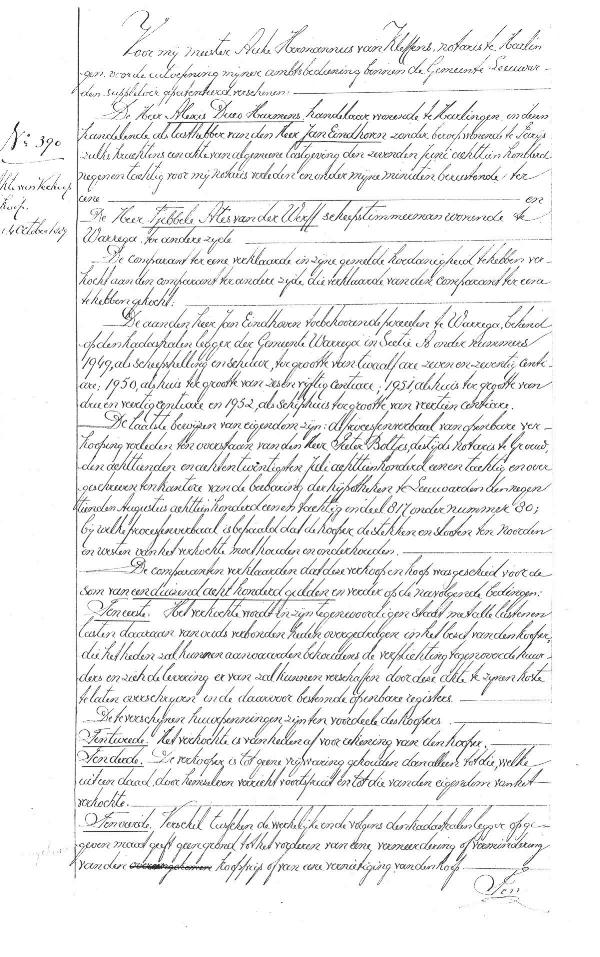 Voor mij meester Anke Hermannus van Kleffens, notaris te Harlin
gen, voor de uitoefening mijner ambtsbediening binnen de Gemeente Leeuwar-
den suppletoir gepatenteerd verschenen:
De Heer Alexis Dues Harmens, handelaar wonende te Harlingen, en dezen
handelende als lasthebber van den Heer Jan Eindhoven zonder beroep wonende te Parijs
zulks krachtens en akte van algemeene lastgeving den zevenden Juni achttien honderd
negen en tachtig voor mij notaris verleden en onder mijne minuten berustende; ter
eene en
No. 390
Akte van Verkoop
Koop.
4 October 1889
De Heer Tjebbele Ates van der Werff scheepstimmerman wonende te
Warrega, ter andere zijde
De comparant ter eene verklaarde in zijne gemelde hoedanigheid te hebben ver-
kocht aan den comparant ter andere zijde die verklaarde van den comparant ter eene
te hebben gekocht:
De aan den heer Jan Eindhoven toebehoorende perceelen te Warrega, bekend
op den kadastralen legger der Gemeente Warrega in Sectie A onder nummers
1949, als scheepstelling en schuur, ter grootte van twaalf are zeven en zeventig centi-
are; 1950, als huis ter grootte van zes en vijftig centiare; 1951 als huis ter grootte van
drie en veertig centiare en 1952, als schiphuis ter grootte van veertien centiare.
De laatste bewijzen van eigendom zijn: a. procesverbaal van openbare ver-
kooping verleden ten overstaan van den Heer Pieter Boltjes, destijds notaris te Grouw,
den achttienden en acht en twintigsten Juli achttienhonderd een en tachtig en over
geschreven ten kantore van de bewaring der hypotheken te Leeuwarden den negen
tienden Augustus achttienhonderd een en tachtig in deel 817 onder nummer 80;
bij welke procesverbaal is bepaald dat de kooper de stekken en slooten ten Noorden
en westen van het verkochte moet houden en onderhouden.
De comparanten verklaarden dat deze verkoop en koop was geschied voor de
som van een duizend acht honderd gulden en verder op de navolgende bedingen:
Ten eerste. Het verkochte wordt in zijn tegenwoordigen staat met alle lusten en
lasten daaraan van ouds verbonden heden overgedragen in het bezit van den kooper,
die het heden zal kunnen aanvaarden behoudens de verplichting tegenover de huur-
ders en zich de levering er van zal kunnen verschaffen door deze akte te zijnen koste
te laten overschrijven in de daarvoor bestemde openbare registers.
De te verschijnen huurpenningen zijn ten voordeele des koopers
Ten tweede. Het verkochte is van heden af voor rekening van den kooper.
Ten derde. De verkooper is tot geene vrijwaring gehouden dan alleen tot die, welke
uit een daad, door hemzelven verricht voortspruit en tot die van den eigendom van het
verkochte.
Ten vierde. Verschil tusschen de werkelijke en de volgens den kadastralen legger opge-
geven maat geeft geen grond tot het vorderen van eene vermeerdering of vermindering
van den koopprijs of van eene vernietiging van den koop
Ten